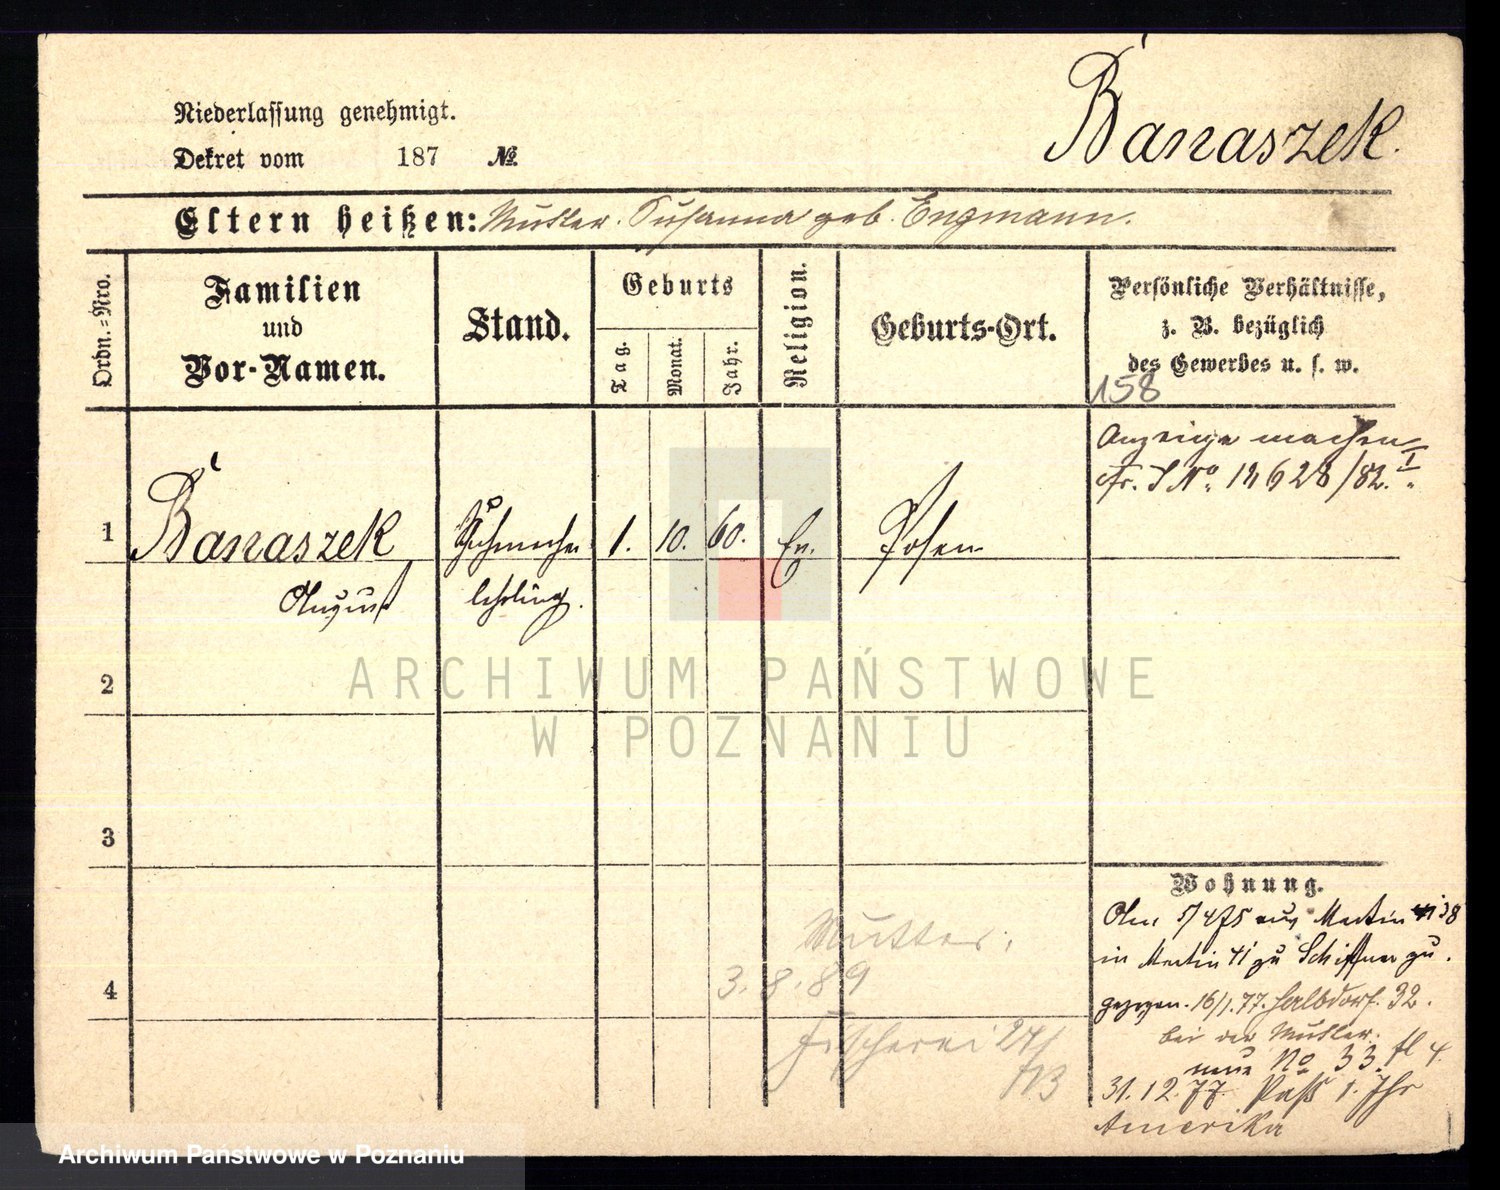 Banaszek.
Niederlassung genehmigt.
Dekret vom 187 №
Eltern heißen: Mutter Susanna geb. Engmann.
Ordn.=Nro.
Familien
und
Vor-Namen.
Stand.
Geburts
Tag.
Monat.
Jahr.
Religion.
Geburts-Ort.
Persönliche Verhältnisse,
z. B. bezüglich
des Gewerbes u. s. w.
158
Anzeige machen
fr. J No. 12628/82. I.
1 Banaszek Schumacher 1. 10. 60. Ev. Posen
August lehrling.
2
ARCHIWUM PAŃSTWOWE
W POZNANIU
3
Wohnung.
5/4 75 aus Martin 38
in Martin 41 zu Schiffner zu
gezogen. 16/1. 77. Halbdorf. 32.
bei der Mutter.
neue No 33.
31.12.77. Paß 1. Jhr
Amerika
Mutter:
4 3.8.89
Fischerei 24/
Archiwum Państwowe w Poznaniu